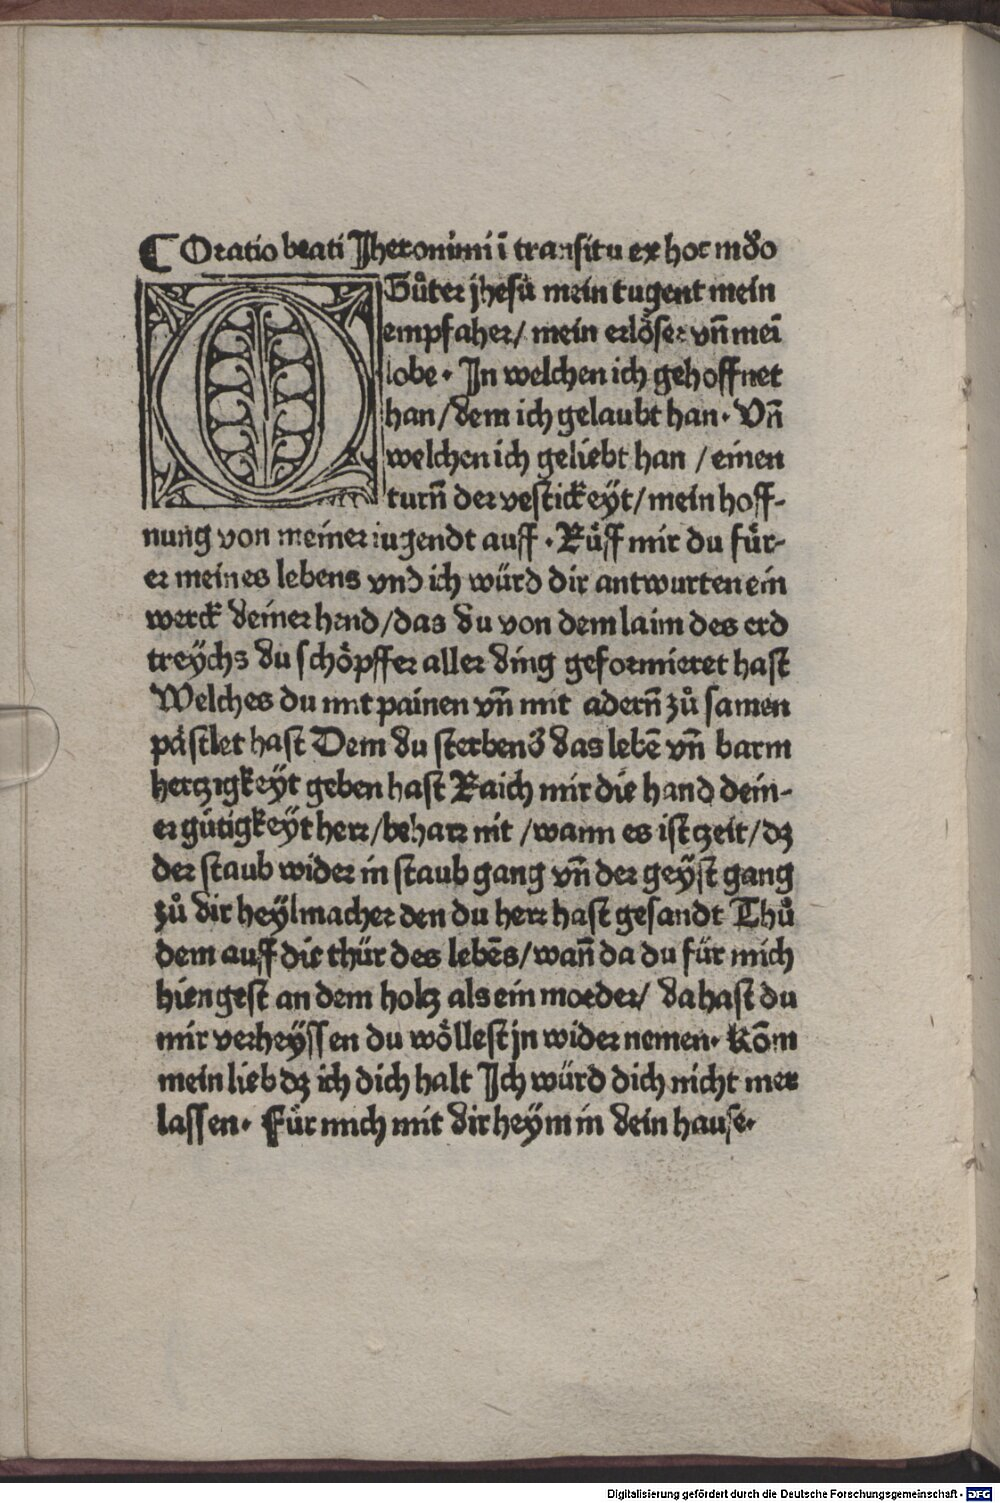 ¶ Oratio beati Jheronimi ī transitu ex hoc mūdo
O Gůter jhesu mein tugent mein
empfaher/ mein erlöser vñ mei
lobe. In welchen ich gehoffnet
han/dem ich gelaubt han. Vñ
welchen ich geliebt han /einen
turñ der vestickeyt/mein hoff-
nung von meiner iugendt auff. Rüff mir du für-
er meines lebens vnd ich würd dir antwurten ein
werck deiner hend/das du von dem laim des erd
treÿchs du schöpffer aller ding geformieret hast
Welches du mit painen vñ mit adern̄ zů samen
pästlet hast Dem du sterbend das lebē vñ barm
hertzigkeÿt geben hast Raich mir die hand dein-
er gütigkeÿt herr/beharr nit /wann es ist tzeit/dz
der staub wider in staub gang vñ der geÿst gang
zů dir heÿlmacher den du herr hast gesandt Thů
dem auff die thür des lebēs/wañ da du für mich
hiengest an dem holtz als ein morder/ da hast du
mir verheÿssen du wöllest jn wider nemen. Kōm
mein lieb dz ich dich halt Ich würd dich nicht mer
lassen. Für mich mit dir heÿm in dein hause.
Digitalisierung gefördert durch die Deutsche Forschungsgemeinschaft - DFG